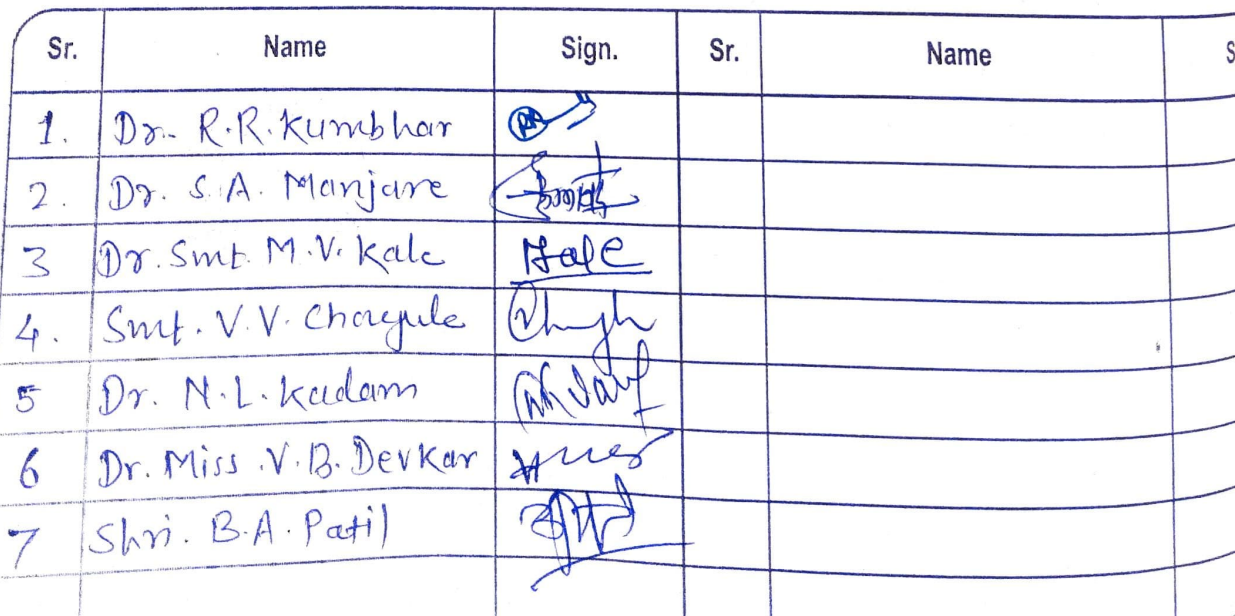 Sr. Name Sign. Sr. Name S
1. Dr. R.R. Kumbhar
2. Dr. S.A. Manjare
3 Dr. Smt. M.V. Kale Kale
4. Smt. V.V. Chougule
5 Dr. N.L. Kadam
6 Dr. Miss. V.B. Devkar
7 Shri. B.A. Patil